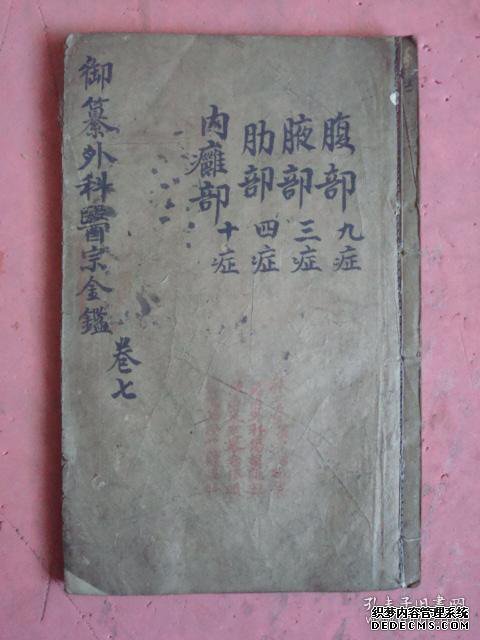 腹部九症
腋部三症
肋部四症
内癰部十症
御纂外科醫宗金鑑卷七
孔夫子旧书网
织梦内容管理系统
DEDECMS.COM